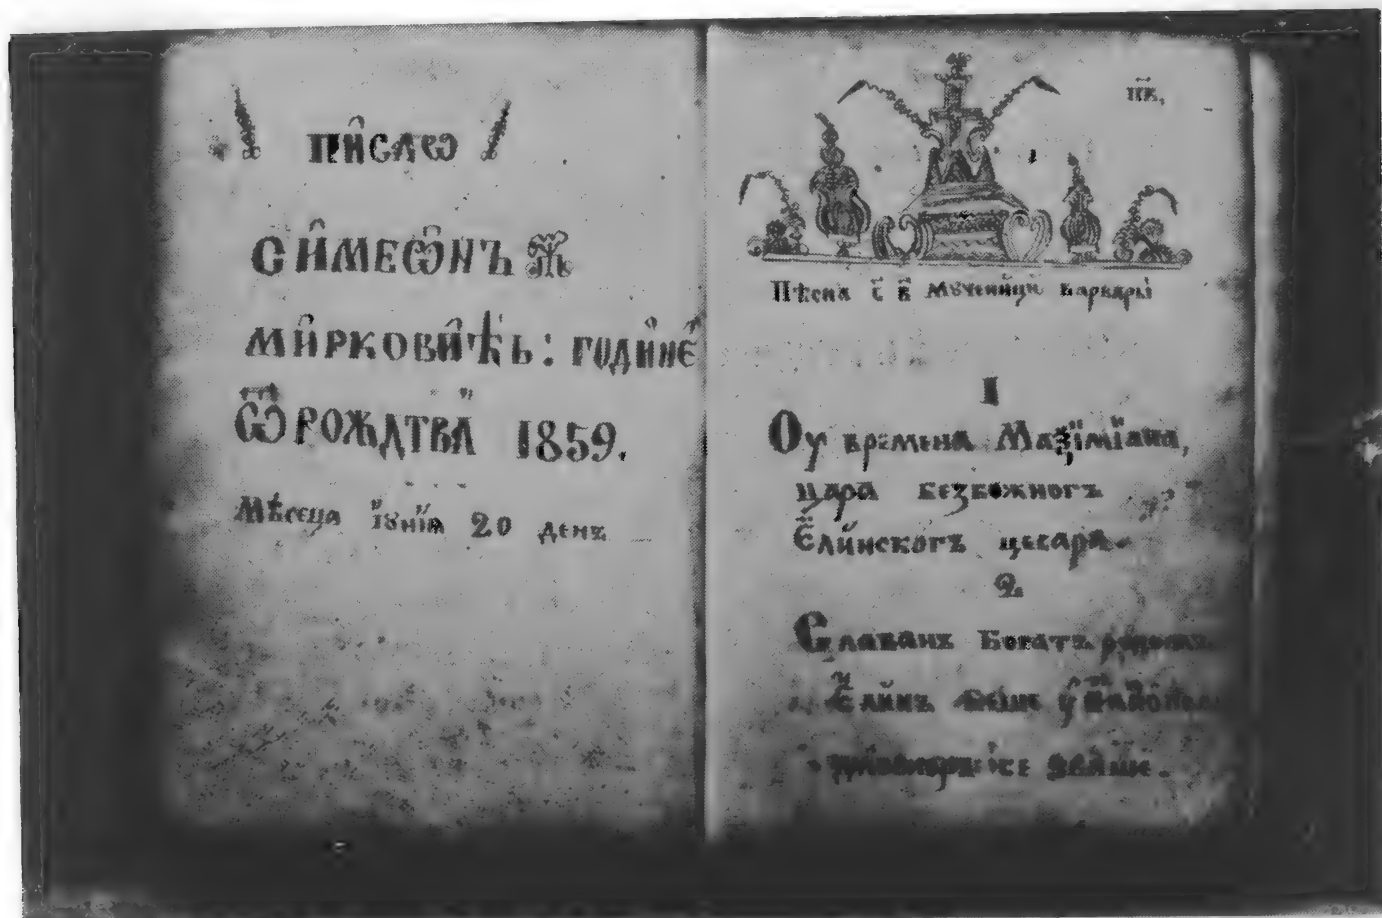 ПИ̑САѠ
СИ̑МЕѠ̑НЪ
МИ̑РКОВИ̑ЋЬ: ГОДИ̑НЕ̑
Ѿ РОЖДТВА̏ 1859.
Мѣсеца і҆ꙋнїа 20 денъ
пк҃,
Пѣсна с҃ в҃ мꙋчени̑ци̑ варвары̏
1
Оу времена Маѯїмїана,
цара безбожногъ
Е҆ли̑нскогъ цесара.
2.
Славанъ Богатъ родомъ
Е҆ли̑нъ